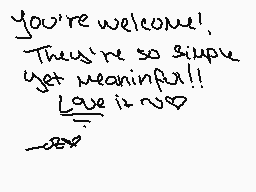 You're welcome!,
They're so simple
yet meaninful!!
Love it ~♡